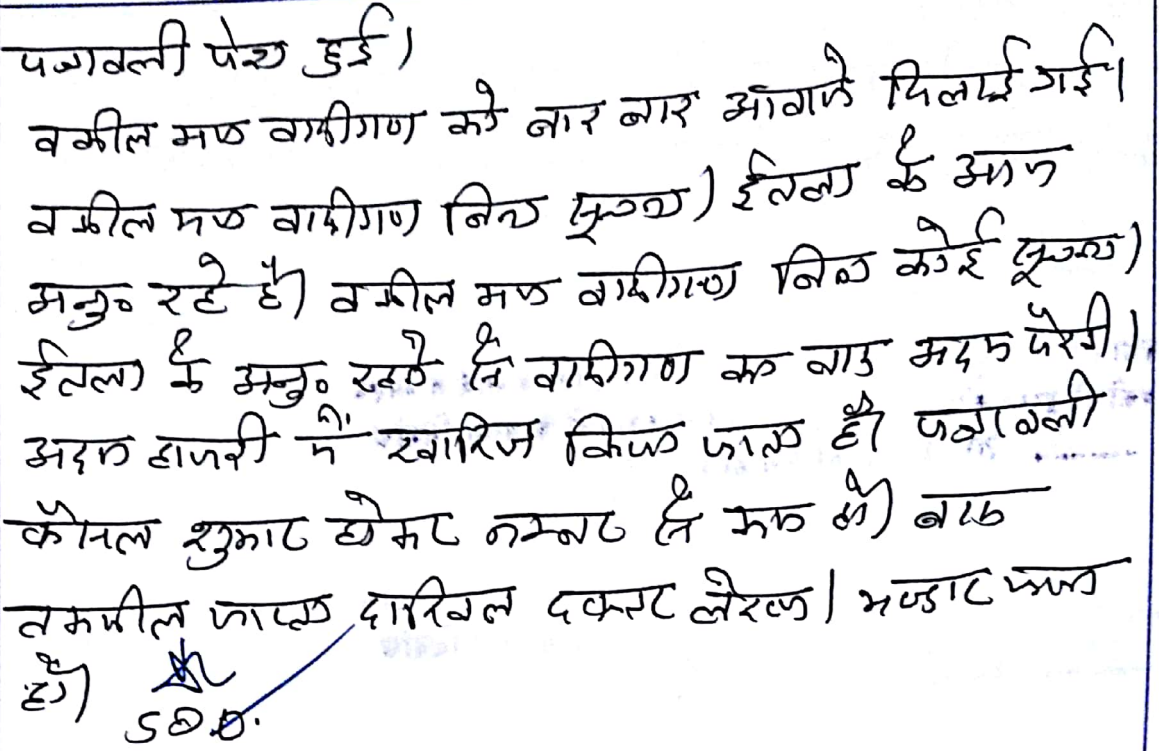 पत्रावली पेश हुई।
वकील मय वादीगण को बार बार आवाजे दिलाई गई।
वकील मय वादीगण बिना सूचना / ईतला के आज
अनु० रहे है। वकील मय वादीगण बिना कोई सूचना /
ईतला के अनु० रहने से वादीगण का वाद अदम पैरवी /
अदम हाजरी में खारिज किया जाता है। पत्रावली
फैसल शुमार होकर नम्बर से कम हो। बाद
तकमील जाप्ता दाखिल दफ्तर लेख्य / भण्डार
हो।
S.D.O.